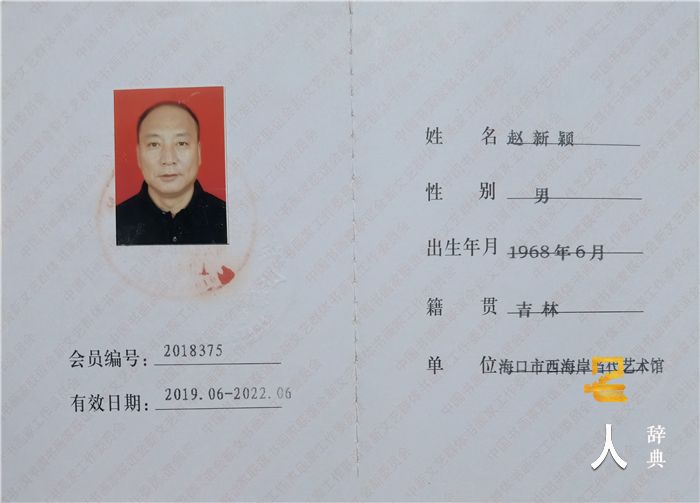 会员编号: 2018375
有效日期: 2019.06-2022.06
姓 名 赵新颖
性 别 男
出生年月 1968年6月
籍 贯 吉林
单 位 海口市西海岸当代艺术馆
名人辞典